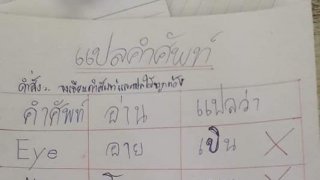 แปลคำศัพท์
คำสั่ง:. จงเขียนคำศัพท์และแปลให้ถูกต้อง
คำศัพท์ อ่าน แปลว่า
Eye อาย เป็น